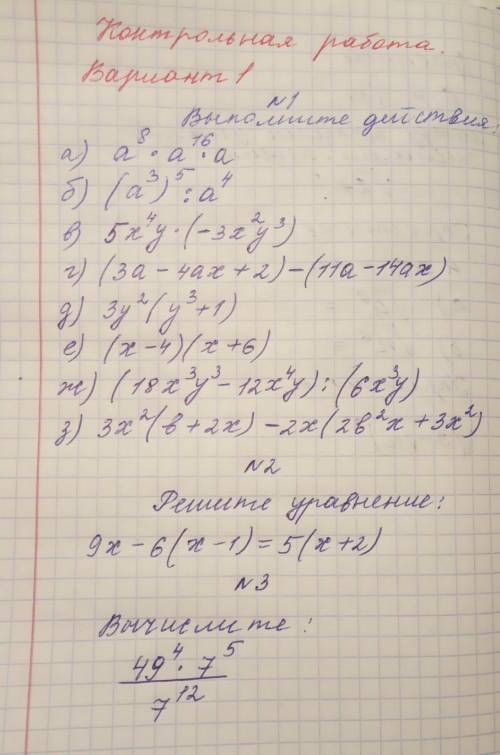 Контрольная работа.
Вариант 1
№1
Выполните действия:
а) a⁸ · a¹⁶ · a
б) (a³)⁵ : a⁴
в) 5x⁴y · (-3x²y³)
г) (3a - 4ax + 2) - (11a - 14ax)
д) 3y²(y³ + 1)
е) (x - 4)(x + 6)
ж) (18x³y³ - 12x⁴y) : (6x³y)
з) 3x²(в + 2x) - 2x(2в²x + 3x²)
№2
Решите уравнение:
9x - 6(x - 1) = 5(x + 2)
№3
Вычислите:
49⁴ · 7⁵
7¹²